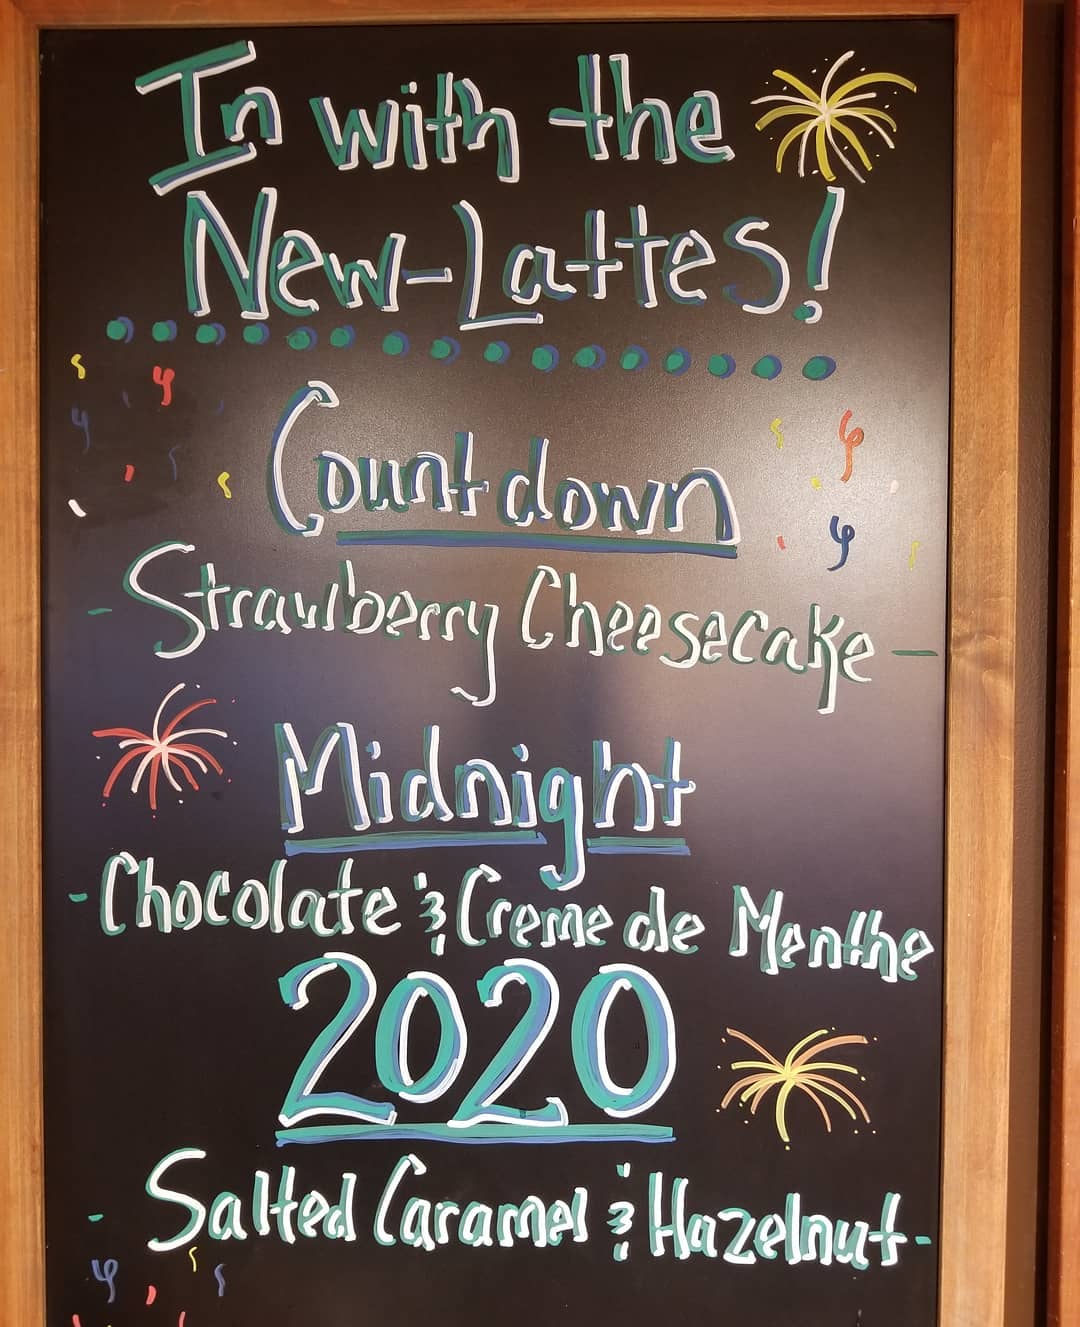 In with the
New-Lattes!
Countdown
- Strawberry Cheesecake -
Midnight
- Chocolate & Creme de Menthe
2020
- Salted Caramel & Hazelnut -